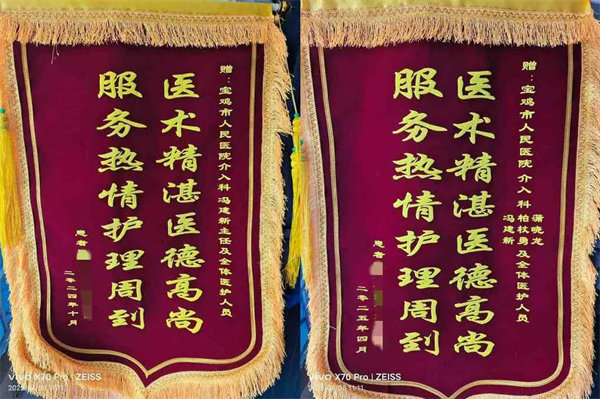 赠：宝鸡市人民医院介入科 冯建新主任及全体医护人员
医术精湛医德高尚
服务热情护理周到
患者
二零二四年十月
vivo X70 Pro | ZEISS
赠：宝鸡市人民医院介入科
蒲晓龙
柏杖勇
冯建新
及全体医护人员
医术精湛医德高尚
服务热情护理周到
患者
二零二五年四月
vivo X70 Pro | ZEISS